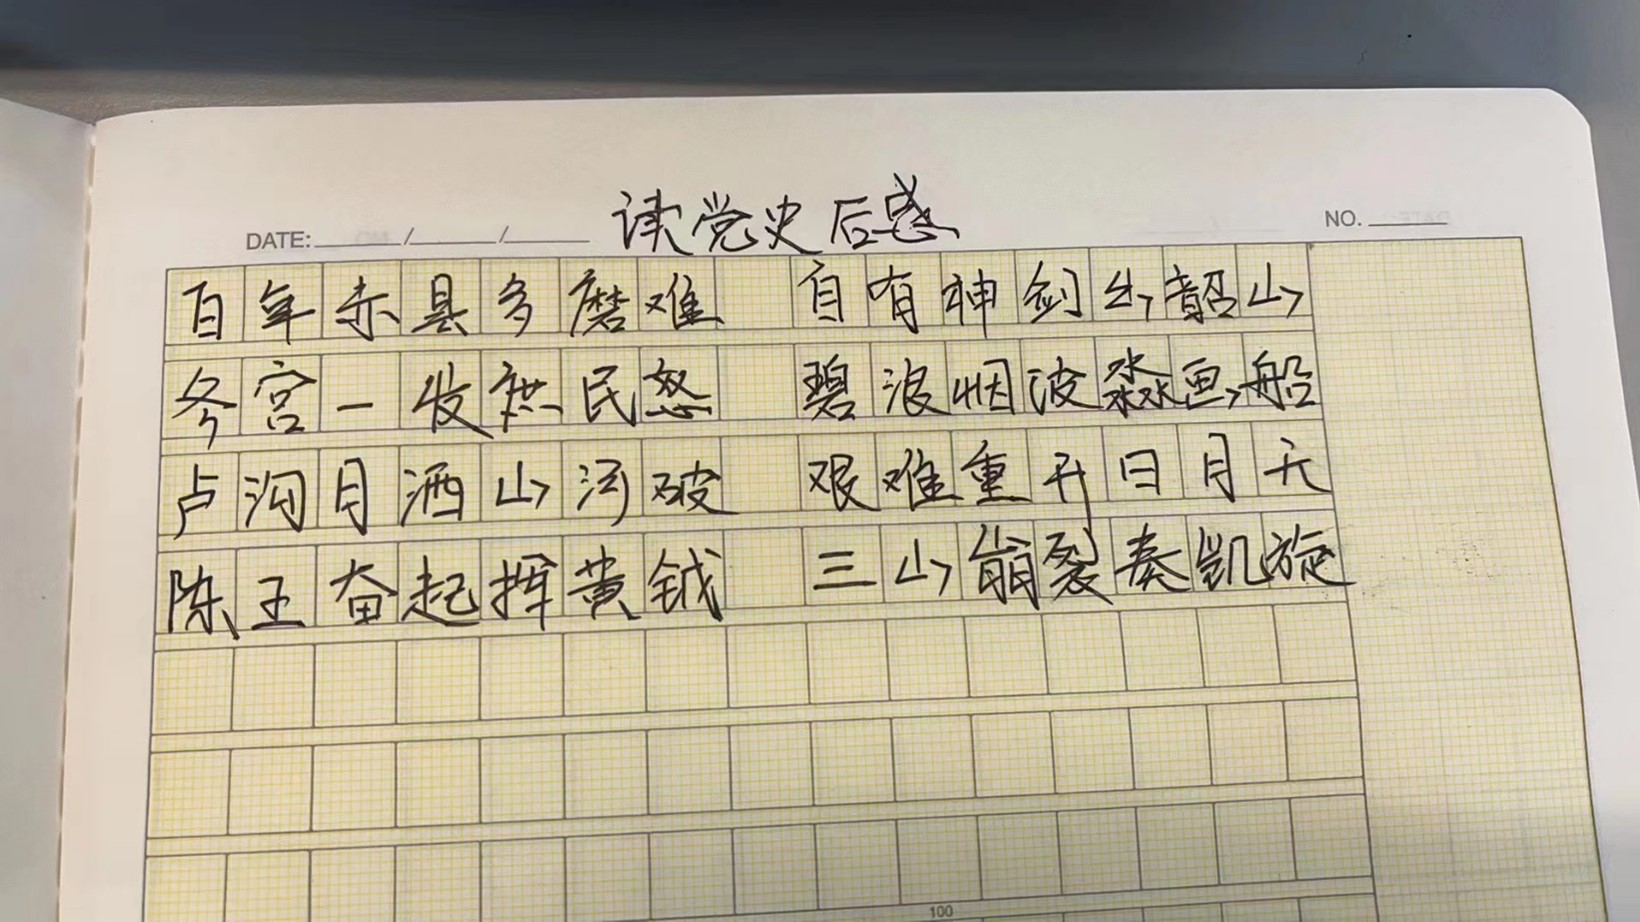 读党史后感
DATE: / / NO.
百年赤县多磨难 自有神剑出韶山
冬宫一收庶民怒 碧浪烟波淼画船
卢沟月洒山河破 艰难重开日月天
陈王奋起挥黄钺 三山崩裂奏凯旋
100